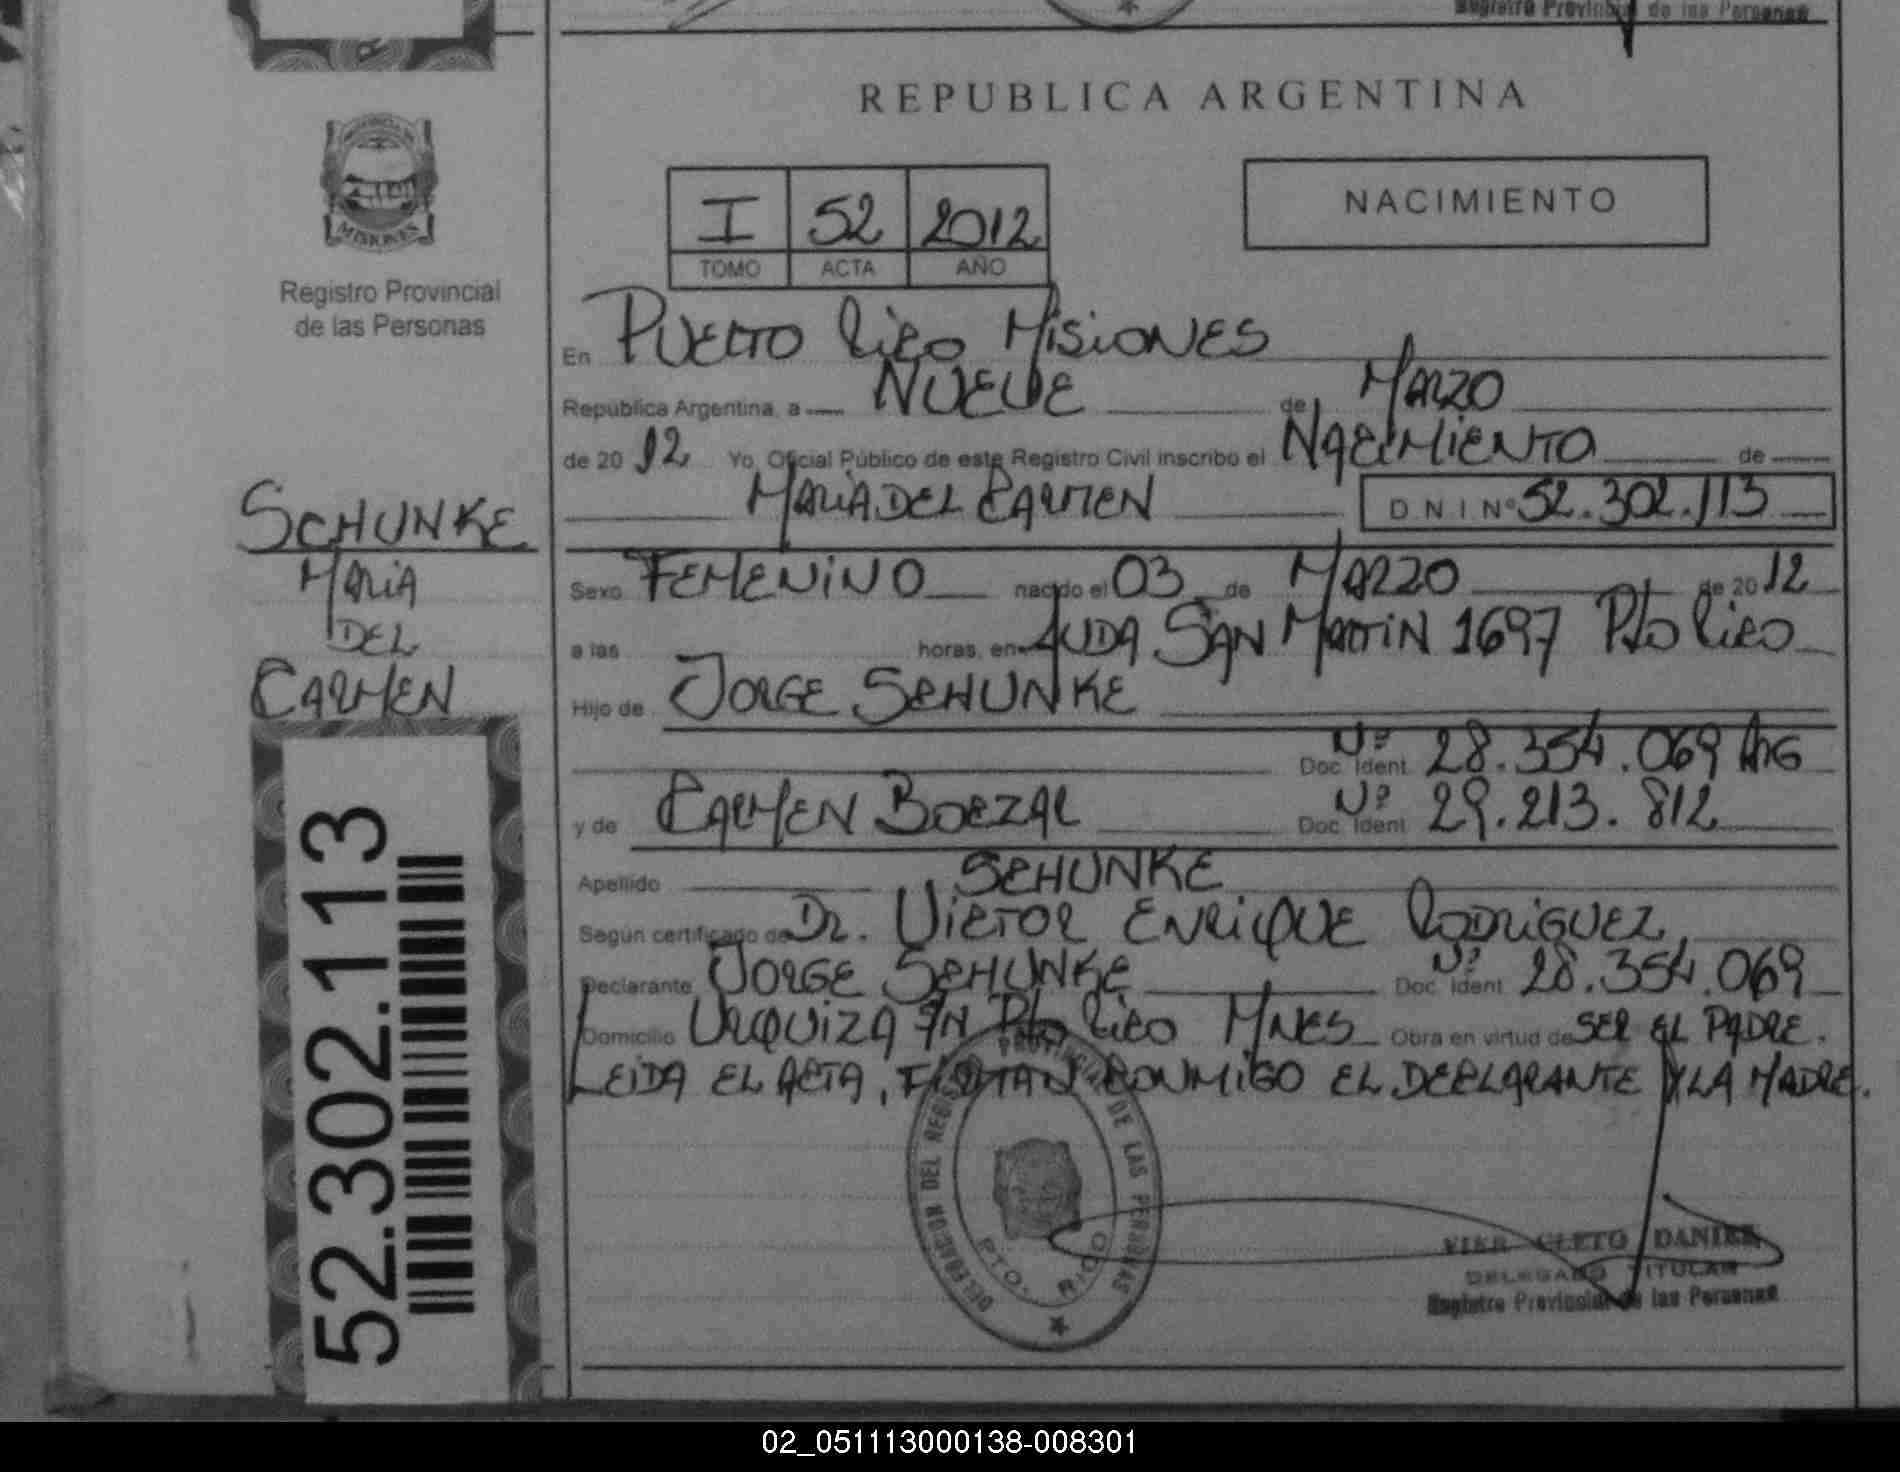 Registro Provincial de las Personas
REPUBLICA ARGENTINA
NACIMIENTO
I 52 2012
TOMO ACTA AÑO
MISIONES
Registro Provincial
de las Personas
En PUERTO RICO MISIONES
República Argentina, a NUEVE de MARZO
de 20 12 Yo, Oficial Público de este Registro Civil inscribo el NACIMIENTO de
MARIA DEL CARMEN D N I Nº 52.302.113
SCHUNKE
MARIA
DEL
CARMEN
Sexo FEMENINO nacido el 03 de MARZO de 20 12
a las horas, en AVDA SAN MARTIN 1697 Pto RICO
Hijo de JORGE SCHUNKE
Nº
Doc. Ident. 28.354.069 ARG
y de CARMEN BOEZAR Nº
Doc. Ident. 29.213.812
Apellido SCHUNKE
Según certificado de DR. VICTOR ENRIQUE RODRIGUEZ
Declarante JORGE SCHUNKE Nº Doc. Ident. 28.354.069
Domicilio URQUIZA S/N Pto RICO MNES Obra en virtud de SER EL PADRE.
LEIDA EL ACTA, FIRMAN CONMIGO EL DECLARANTE Y LA MADRE.
52.302.113
DELEGACION DEL REGISTRO PROVINCIAL DE LAS PERSONAS
PTO. RICO
VIER CLETO DANIEL
DELEGADO TITULAR
Registro Provincial de las Personas
02_051113000138-008301